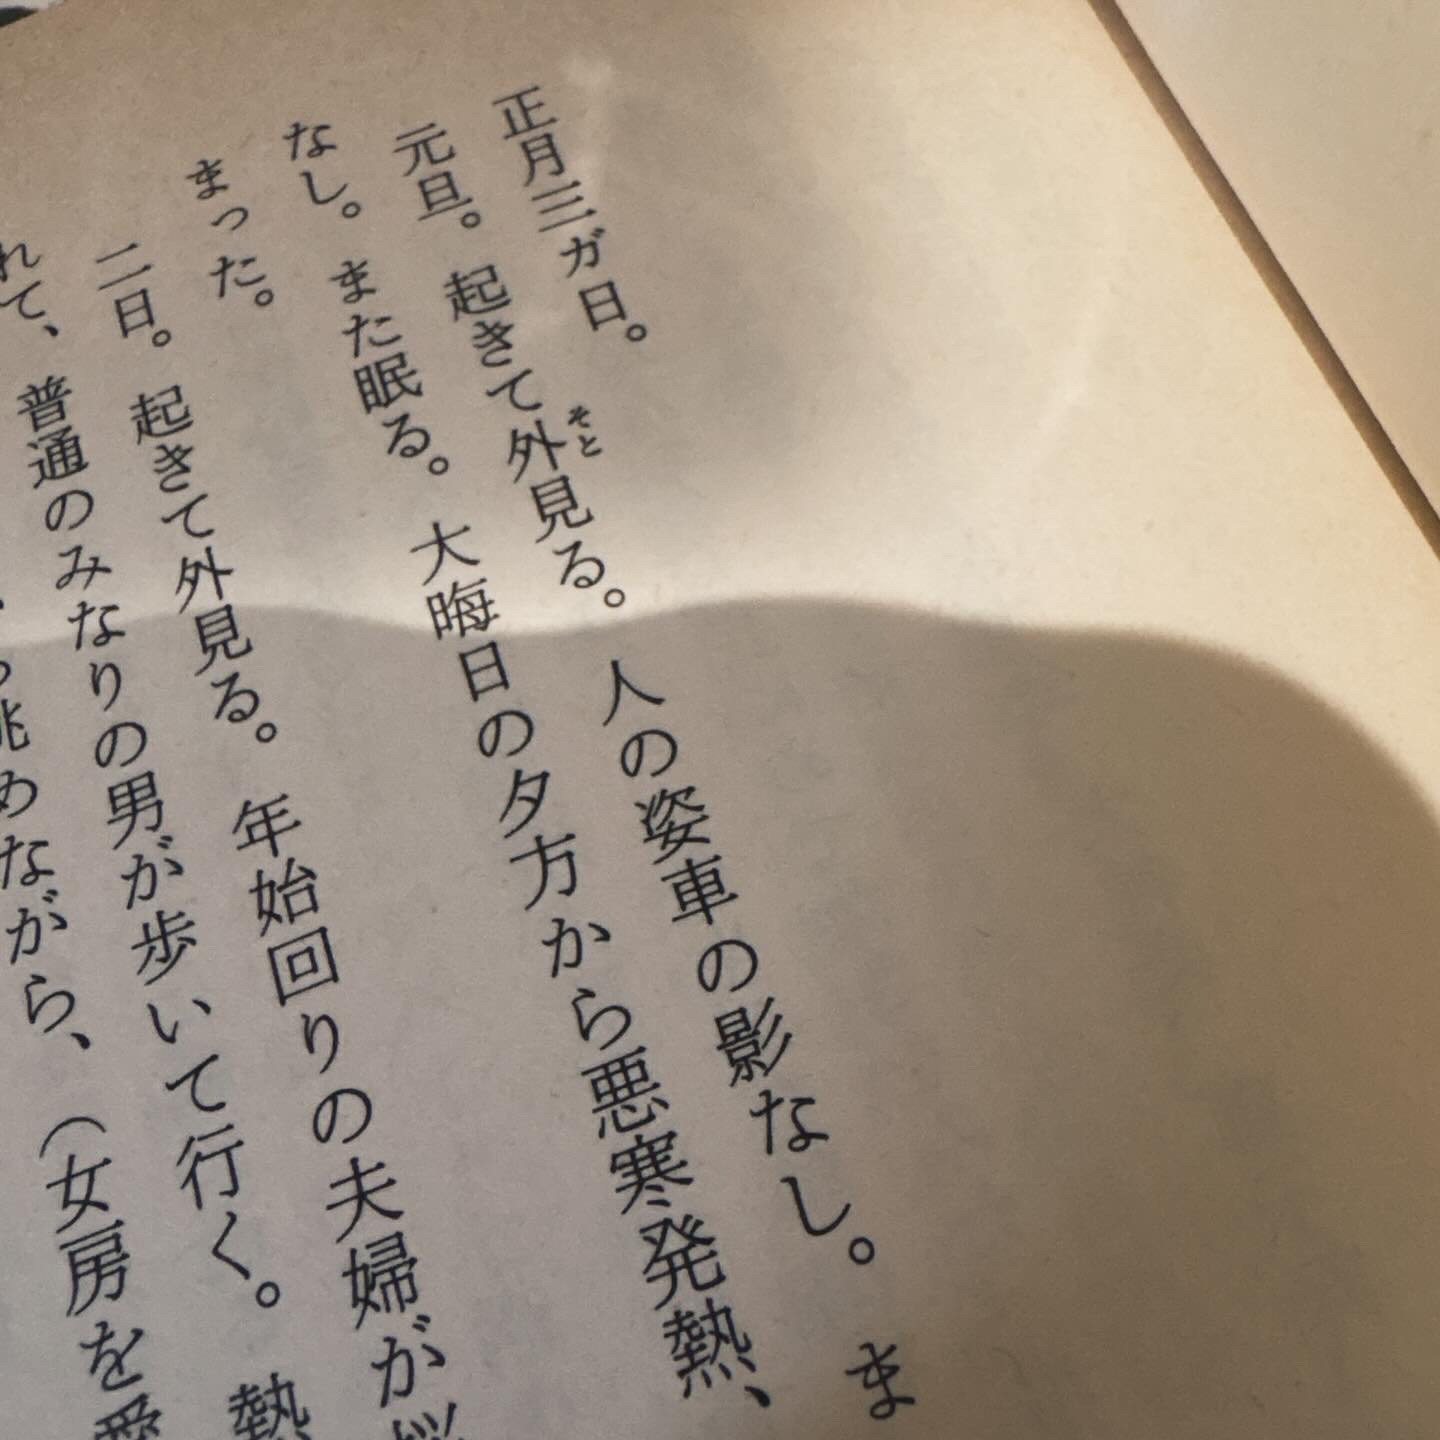 正月三ガ日。
元旦。起きて外見る。人の姿車の影なし。ま
そと
なし。また眠る。大晦日の夕方から悪寒発熱、
まった。
二日。起きて外見る。年始回りの夫婦が
れて、普通のみなりの男が歩いて行く。熱
眺めながら、（女房を愛